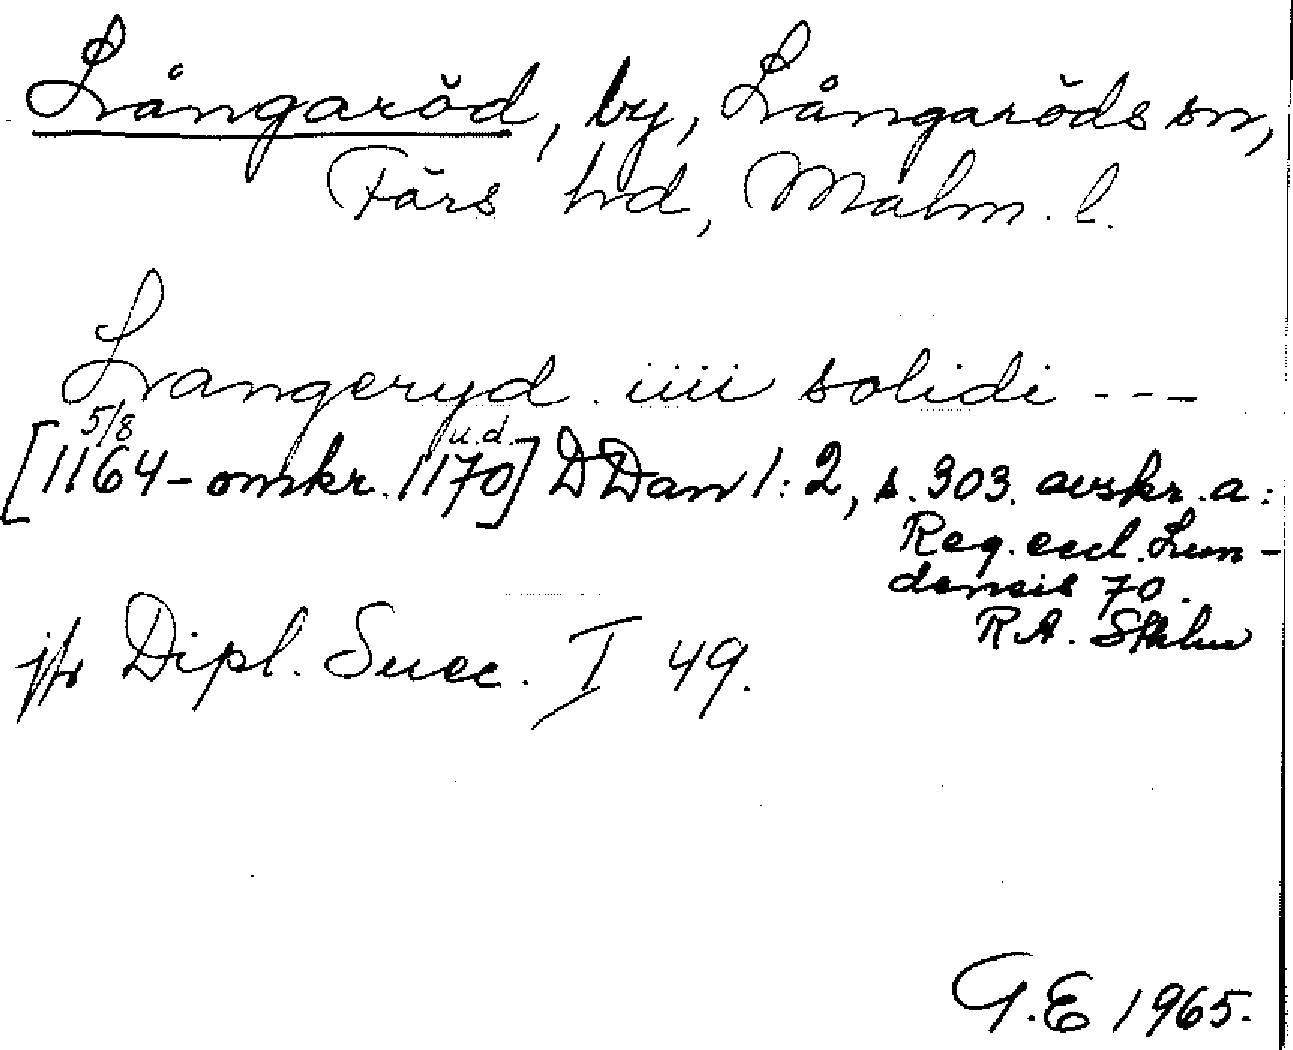 Långaröd, by, Långaröds sn,
Färs hd, Malm. l.
Langeryd. iiii solidi ---
5/8 u.d.
[1164-omkr. 1170] DDan 1:2, s. 303. avskr. a:
Reg. eccl. Lun-
densis 70.
R.A. Sthlm
jfr Dipl. Suec. I 49.
G.E 1965.